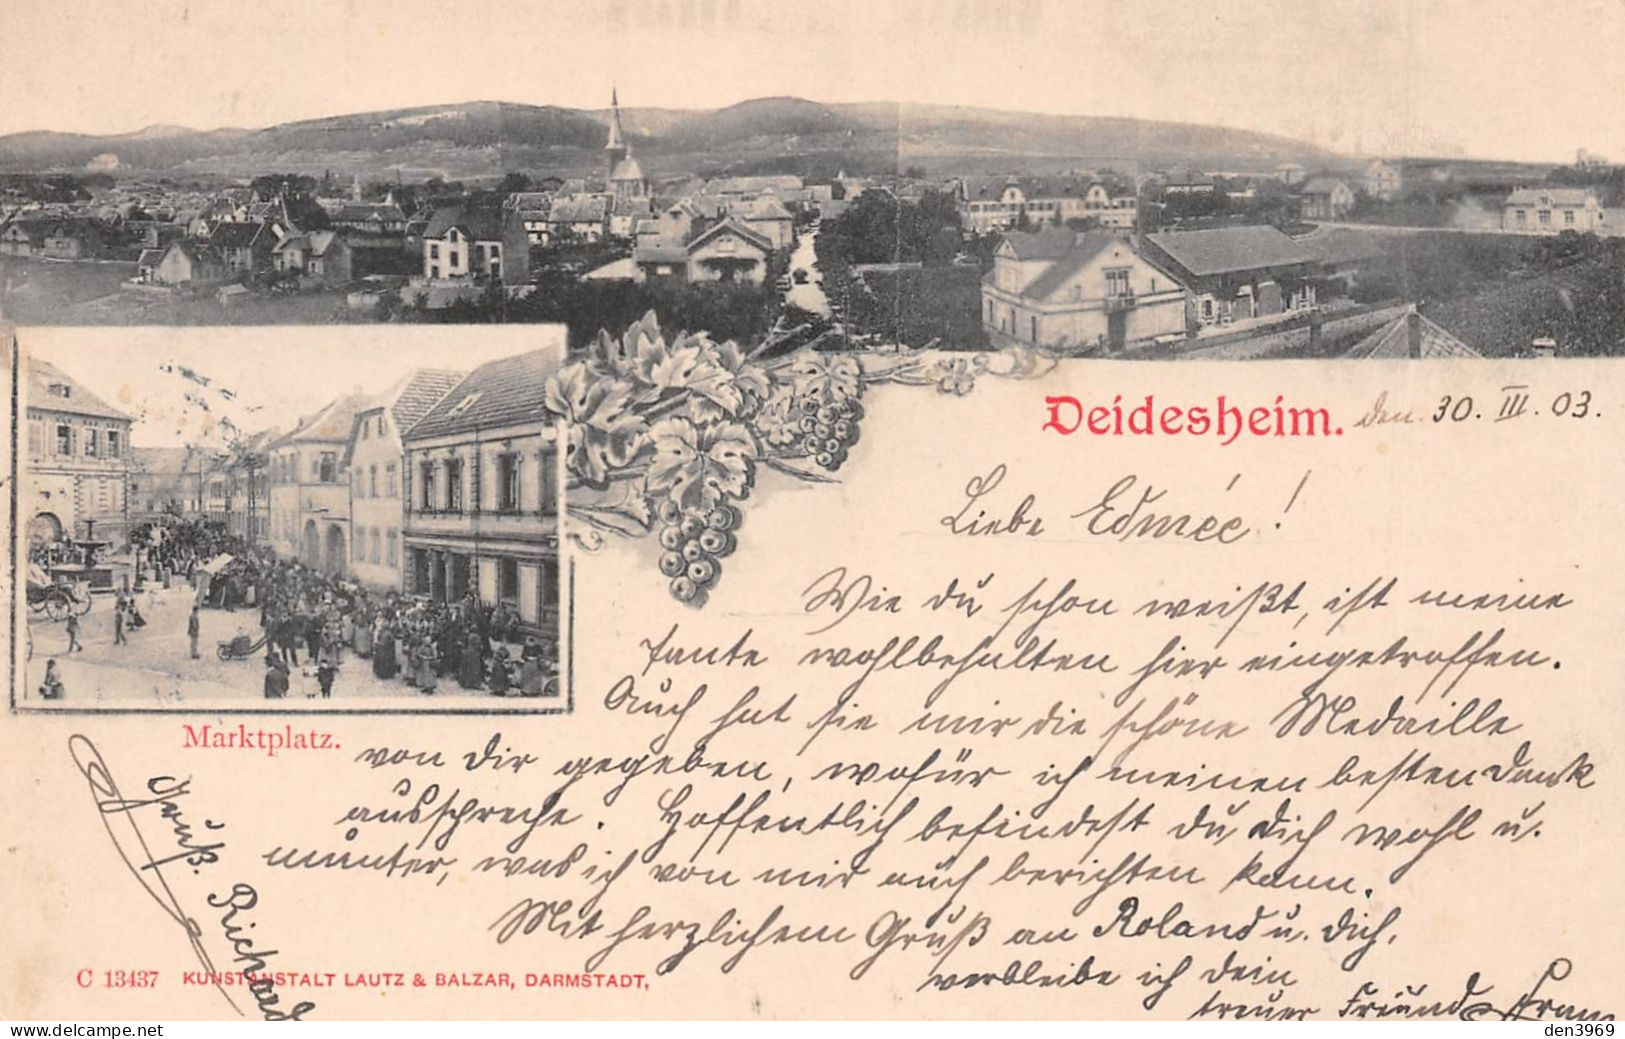 Deidesheim. den 30. III. 03.
Liebe Edmée!
Wie du schon weißt, ist meine
Tante wohlbehalten hier eingetroffen.
Auch hat sie mir die schöne Medaille
von dir gegeben, wofür ich meinen besten Dank
ausspreche. Hoffentlich befindest du dich wohl u.
munter, was ich von mir auch berichten kann.
Mit herzlichem Gruß an Roland u. dich,
verbleibe ich dein
treuer Freund Franz
Marktplatz.
Gruß. Richard
C 13437 KUNSTANSTALT LAUTZ & BALZAR, DARMSTADT,
den3969